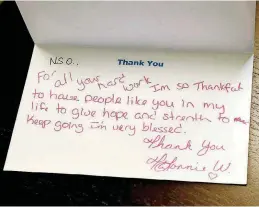 N.S.O.,
Thank You
For all your hard work I'm so Thankful
to have people like you in my
life to give hope and strength to me
Keep going I'm very blessed.
Thank You
W.